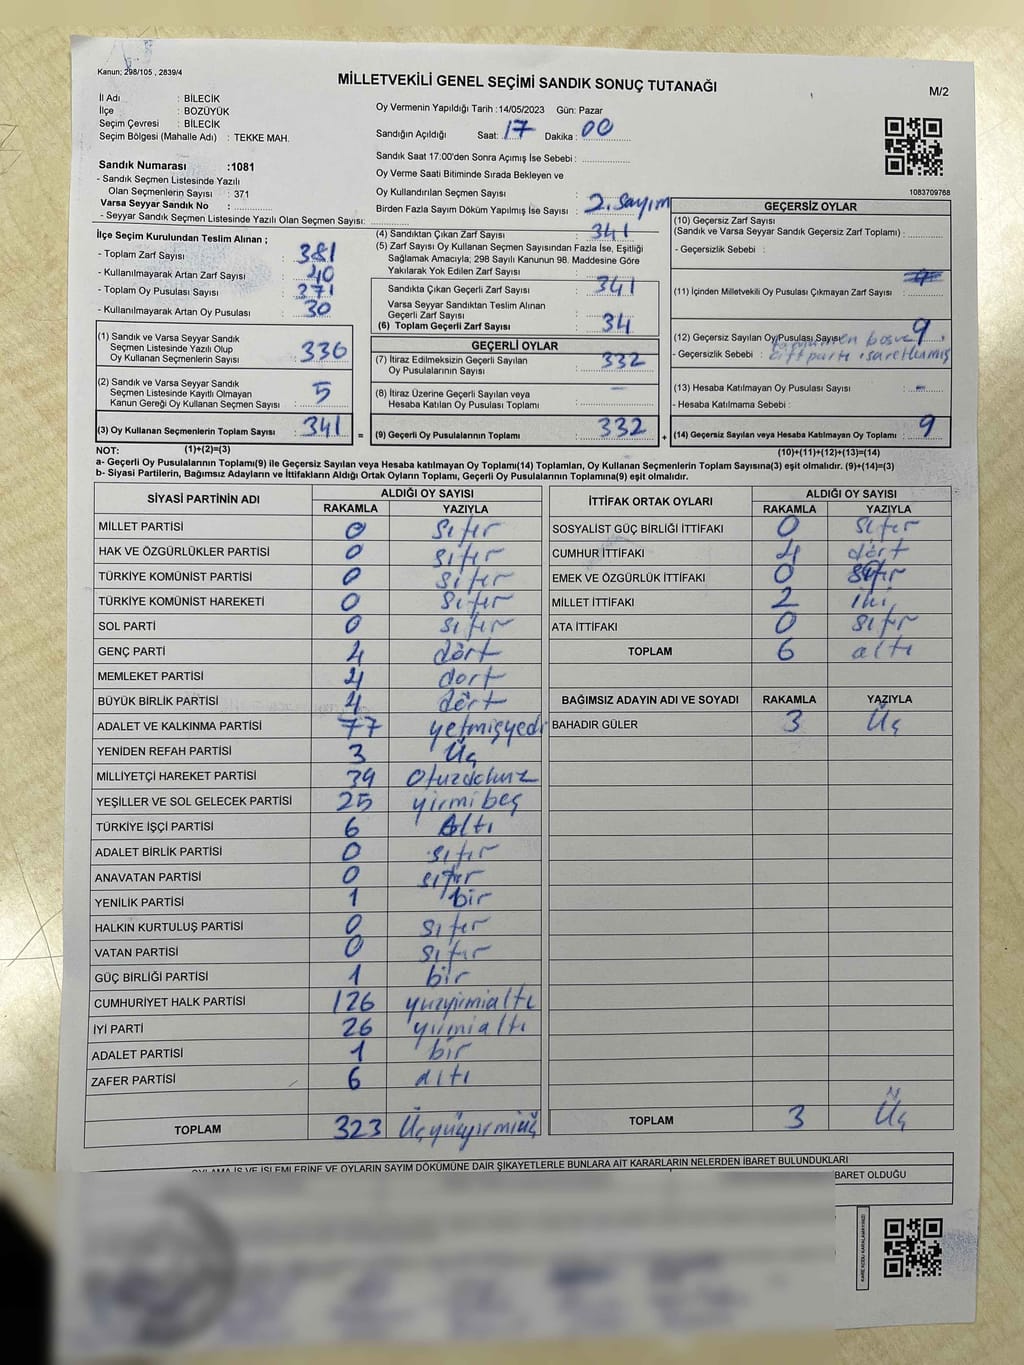 Kanun; 298/105 , 2839/4
MİLLETVEKİLİ GENEL SEÇİMİ SANDIK SONUÇ TUTANAĞI
M/2
İl Adı : BİLECİK
İlçe : BOZÜYÜK
Seçim Çevresi : BİLECİK
Seçim Bölgesi (Mahalle Adı) : TEKKE MAH.
Sandık Numarası :1081
- Sandık Seçmen Listesinde Yazılı
Olan Seçmenlerin Sayısı : 371
Varsa Seyyar Sandık No :
- Seyyar Sandık Seçmen Listesinde Yazılı Olan Seçmen Sayısı:
Oy Vermenin Yapıldığı Tarih :14/05/2023 Gün: Pazar
Sandığın Açıldığı Saat: 17 Dakika : 00
Sandık Saat 17:00'den Sonra Açımış İse Sebebi :
Oy Verme Saati Bitiminde Sırada Bekleyen ve
Oy Kullandırılan Seçmen Sayısı :
Birden Fazla Sayım Döküm Yapılmış İse Sayısı : 2. Sayım
1083709768
İlçe Seçim Kurulundan Teslim Alınan ;
- Toplam Zarf Sayısı : 381
- Kullanılmayarak Artan Zarf Sayısı : 40
- Toplam Oy Pusulası Sayısı : 371
- Kullanılmayarak Artan Oy Pusulası : 30
(1) Sandık ve Varsa Seyyar Sandık
Seçmen Listesinde Yazılı Olup
Oy Kullanan Seçmenlerin Sayısı : 336
(2) Sandık ve Varsa Seyyar Sandık
Seçmen Listesinde Kayıtlı Olmayan
Kanun Gereği Oy Kullanan Seçmen Sayısı : 5
(3) Oy Kullanan Seçmenlerin Toplam Sayısı : 341 =
(4) Sandıktan Çıkan Zarf Sayısı : 341
(5) Zarf Sayısı Oy Kullanan Seçmen Sayısından Fazla İse, Eşitliği
Sağlamak Amacıyla; 298 Sayılı Kanunun 98. Maddesine Göre
Yakılarak Yok Edilen Zarf Sayısı :
Sandıkta Çıkan Geçerli Zarf Sayısı : 341
Varsa Seyyar Sandıktan Teslim Alınan
Geçerli Zarf Sayısı :
(6) Toplam Geçerli Zarf Sayısı : 34
GEÇERLİ OYLAR
(7) İtiraz Edilmeksizin Geçerli Sayılan
Oy Pusulalarının Sayısı : 332
(8) İtiraz Üzerine Geçerli Sayılan veya
Hesaba Katılan Oy Pusulası Toplamı : -
(9) Geçerli Oy Pusulalarının Toplamı : 332 +
GEÇERSİZ OYLAR
(10) Geçersiz Zarf Sayısı
(Sandık ve Varsa Seyyar Sandık Geçersiz Zarf Toplamı) :
- Geçersizlik Sebebi :
(11) İçinden Milletvekili Oy Pusulası Çıkmayan Zarf Sayısı :
(12) Geçersiz Sayılan Oy Pusulası Sayısı : 9
- Geçersizlik Sebebi : çift parti işaretlenmiş
(13) Hesaba Katılmayan Oy Pusulası Sayısı : -
- Hesaba Katılmama Sebebi :
(14) Geçersiz Sayılan veya Hesaba Katılmayan Oy Toplamı : 9
NOT: (1)+(2)=(3) (10)+(11)+(12)+(13)=(14)
a- Geçerli Oy Pusulalarının Toplamı(9) ile Geçersiz Sayılan veya Hesaba katılmayan Oy Toplamı(14) Toplamları, Oy Kullanan Seçmenlerin Toplam Sayısına(3) eşit olmalıdır. (9)+(14)=(3)
b- Siyasi Partilerin, Bağımsız Adayların ve İttifakların Aldığı Ortak Oyların Toplamı, Geçerli Oy Pusulalarının Toplamına(9) eşit olmalıdır.
SİYASİ PARTİNİN ADI ALDIĞI OY SAYISI
RAKAMLA YAZIYLA
MİLLET PARTİSİ 0 sıfır
HAK VE ÖZGÜRLÜKLER PARTİSİ 0 sıfır
TÜRKİYE KOMÜNİST PARTİSİ 0 sıfır
TÜRKİYE KOMÜNİST HAREKETİ 0 sıfır
SOL PARTİ 0 sıfır
GENÇ PARTİ 4 dört
MEMLEKET PARTİSİ 4 dort
BÜYÜK BİRLİK PARTİSİ 4 dört
ADALET VE KALKINMA PARTİSİ 77 yetmişyedi
YENİDEN REFAH PARTİSİ 3 Üç
MİLLİYETÇİ HAREKET PARTİSİ 39 Otuzdokuz
YEŞİLLER VE SOL GELECEK PARTİSİ 25 yirmi beş
TÜRKİYE İŞÇİ PARTİSİ 6 Altı
ADALET BİRLİK PARTİSİ 0 sıfır
ANAVATAN PARTİSİ 0 sıfır
YENİLİK PARTİSİ 1 bir
HALKIN KURTULUŞ PARTİSİ 0 sıfır
VATAN PARTİSİ 0 sıfır
GÜÇ BİRLİĞİ PARTİSİ 1 bir
CUMHURİYET HALK PARTİSİ 126 yuzyirmialtı
İYİ PARTİ 26 yirmialtı
ADALET PARTİSİ 1 bir
ZAFER PARTİSİ 6 altı
TOPLAM 323 Üçyüzyirmiüç
İTTİFAK ORTAK OYLARI ALDIĞI OY SAYISI
RAKAMLA YAZIYLA
SOSYALİST GÜÇ BİRLİĞİ İTTİFAKI 0 sıfır
CUMHUR İTTİFAKI 4 dört
EMEK VE ÖZGÜRLÜK İTTİFAKI 0 sıfır
MİLLET İTTİFAKI 2 iki
ATA İTTİFAKI 0 sıfır
TOPLAM 6 altı
BAĞIMSIZ ADAYIN ADI VE SOYADI RAKAMLA YAZIYLA
BAHADIR GÜLER 3 Üç
TOPLAM 3 Üç
OYLAMA İŞ VE İŞLEMLERİNE VE OYLARIN SAYIM DÖKÜMÜNE DAİR ŞİKAYETLERLE BUNLARA AİT KARARLARIN NELERDEN İBARET BULUNDUKLARI
BARET OLDUĞU